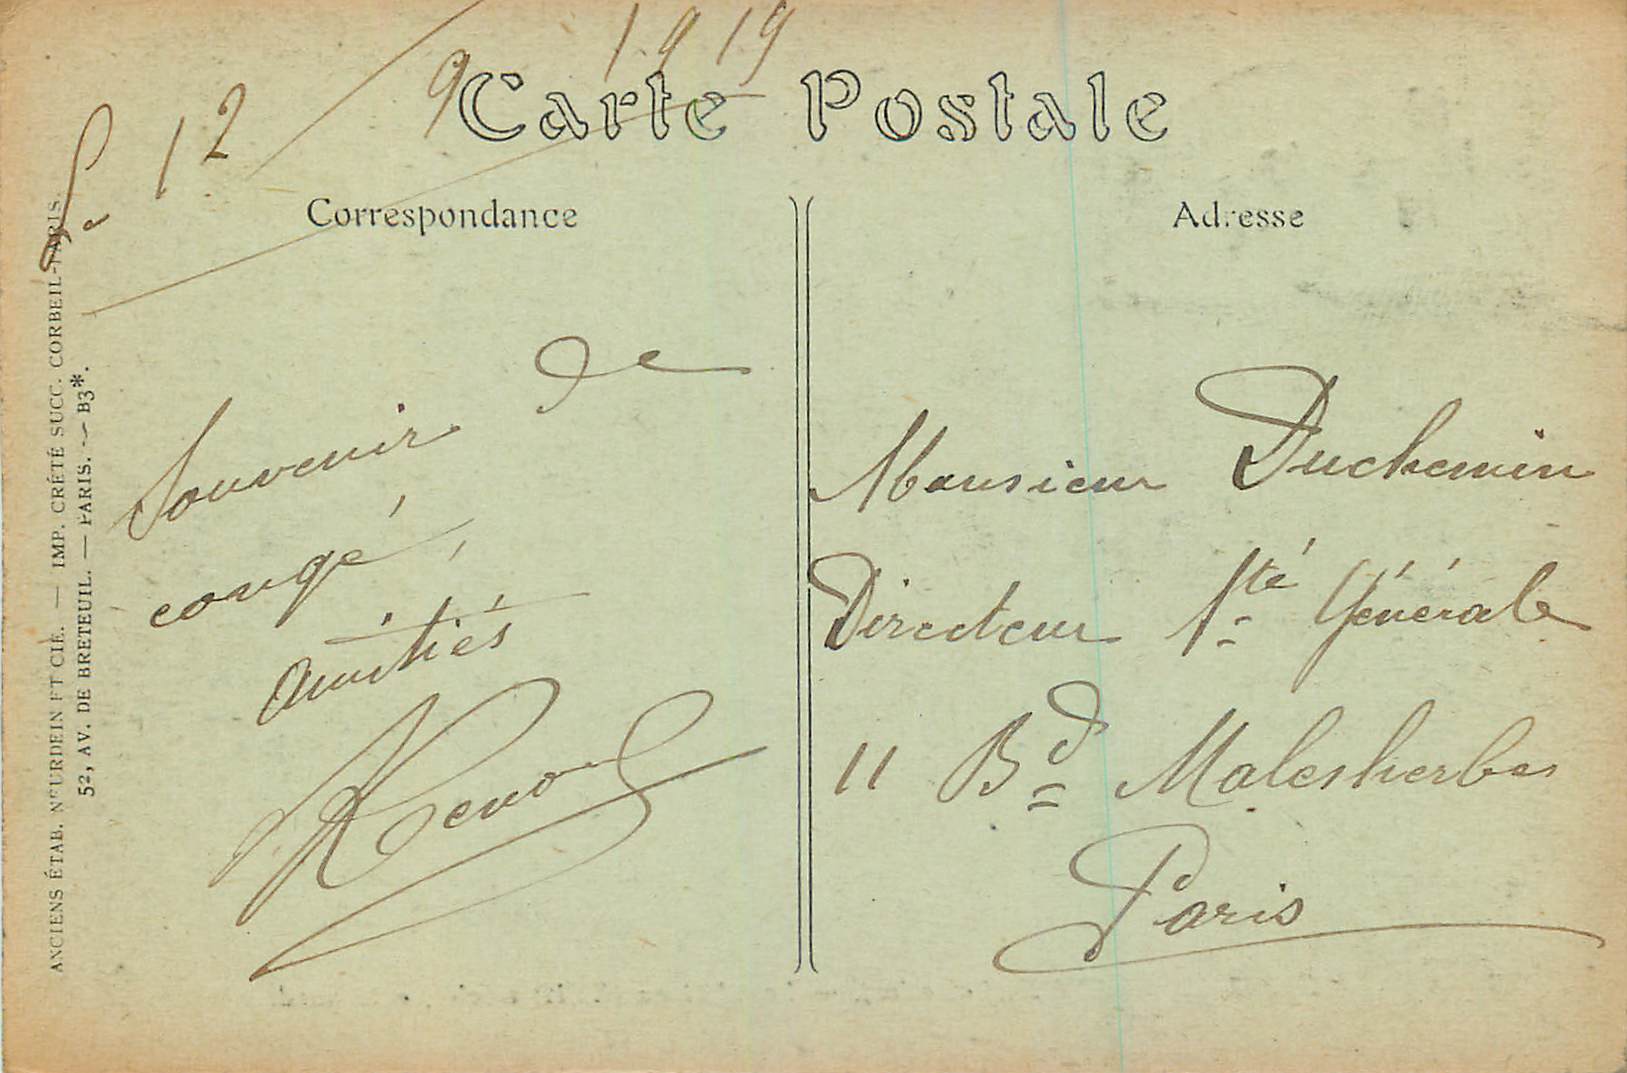 Le 12/9 1919
Carte Postale
Correspondance
Adresse
Souvenir de
congé,
amitiés
Monsieur Duchemin
Directeur Sté Générale
11 Bd Malesherbes
Paris
ANCIENS ÉTAB. NEURDEIN ET CIE. — IMP. CRÉTÉ SUCC. CORBEIL-PARIS.
52, AV. DE BRETEUIL. — PARIS. — B3*.